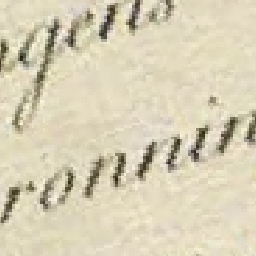 ngens
ronnin